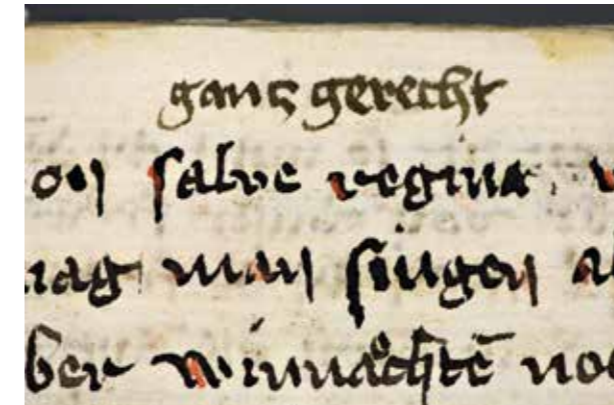 gantz gerecht
on salve regina
nag man singen
ber winnaͤchtē no